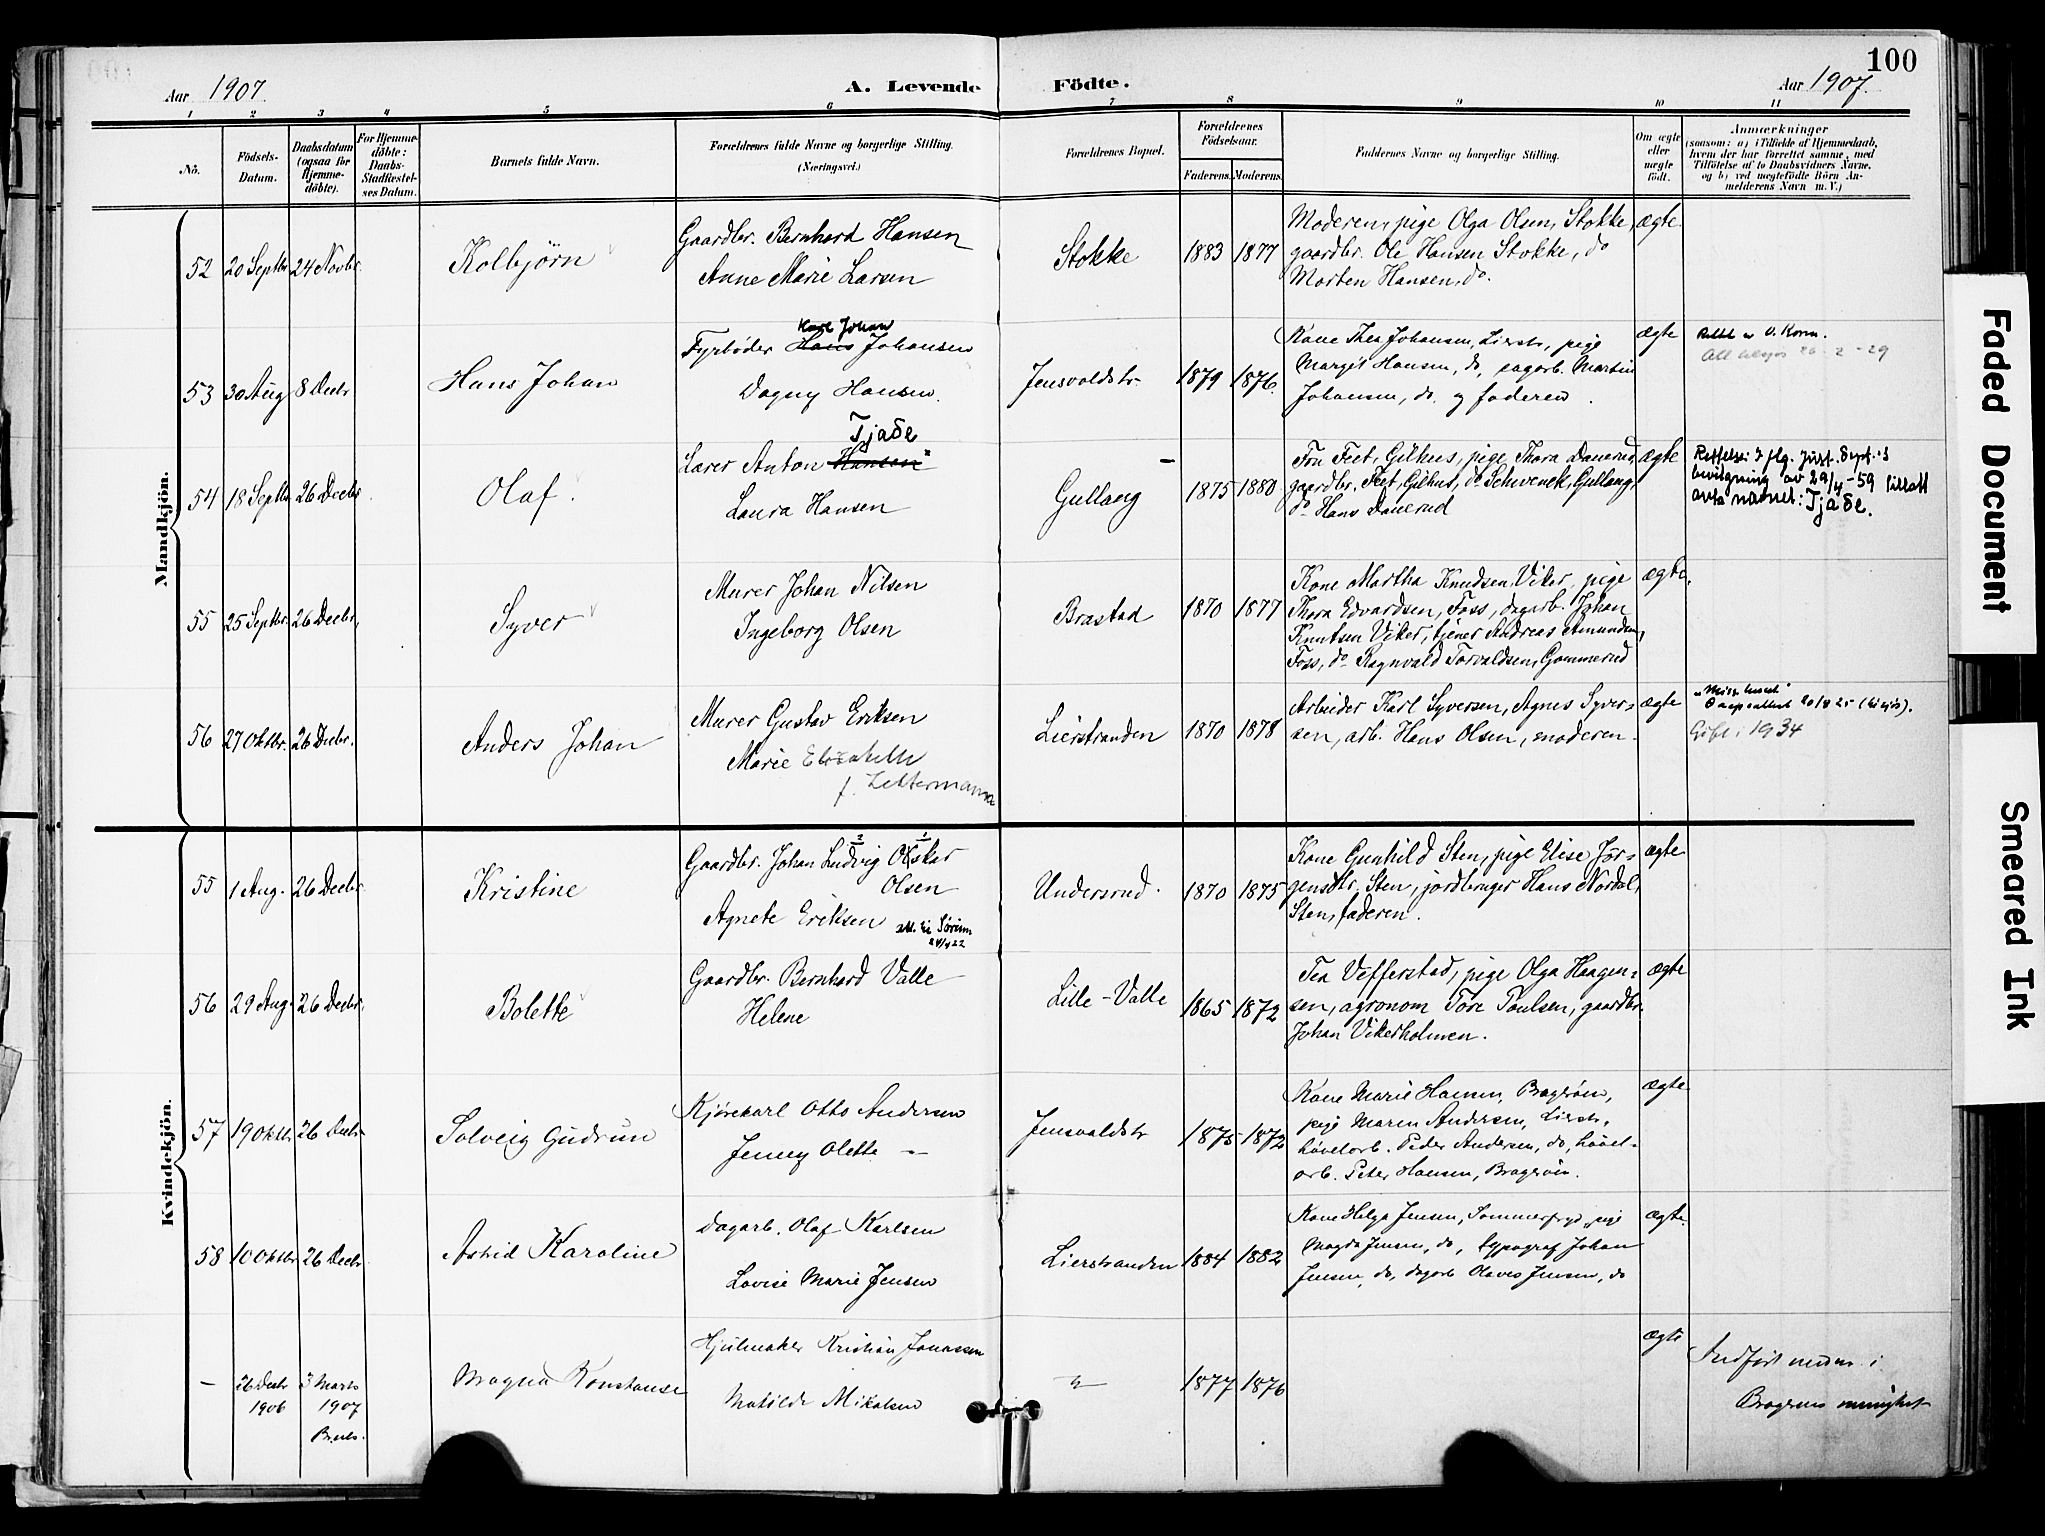 100
Aar 1907
A. Levende Födte.
Aar 1907.
1 2 3 4 5 6 7 8 9 10 11
No.
Födsels-
Datum.
Daabsdatum
(ogsaa for
Hjemme-
döbte).
For Hjemme-
döbte:
Daabs-
Stadfæstel-
ses Datum.
Barnets fulde Navn.
Forældrenes fulde Navne og borgerlige Stilling.
(Næringsvei.)
Forældrenes Bopæl.
Forældrenes
Födselsaar.
Faderens. Moderens.
Faddernes Navne og borgerlige Stilling.
Om ægte
eller
uægte
födt.
Anmærkninger
(saasom: a) i Tilfælde af Hjemmedaab,
hvem der har forrettet samme, med
Tilföielse af to Daabsvidners Navne.
og b) ved uægtefödte Börn An-
melderens Navn m. V.)
Mandkjön.
52 20 Septbr 24 Novbr. Kolbjörn
Gaardbr. Bernhard Hansen
Anne Marie Larsen
Stokke 1883 1877
Moderen, pige Olga Olsen, Stokke,
gaardbr. Ole Hansen Stokke, do
Morten Hansen, do.
ægte.
53 30 Aug 8 Decbr Hans Johan
Karl Johan
Fyrbøder Hans Johansen
Dagny Hansen.
Jensvoldstr. 1879 1876.
Kone Thea Johansen, Lierstr., pige
Margit Hansen, do, sagarb. Martin
Johansen, do. og faderen.
ægte
54 18 Septbr 26 Decbr Olaf.
Tjade
Lærer Anton Hansen
Laura Hansen
Gullaug 1875 1880
Fru Feet, Gilhus, pige Thora Danerud,
gaardbr. Feet, Gilhus, do Schwenck, Gullaug,
do Hans Danerud
ægte
Rettelse: I flg. Just. Dept.s
bevilgning av 29/4-59 tillatt
anta navnet: Tjade.
55 25 Septbr. 26 Decbr. Syver
Murer Johan Nilsen
Ingeborg Olsen
Brastad 1870 1877
Kone Martha Knudsen Viker, pige
Thora Edvardsen, Foss, dagarb. Johan
Knutsen Viker, tjener Andreas Amundsen,
Foss, do Ragnvald Torvaldsen, Gommerud
ægte.
56 27 Oktbr. 26 Decbr. Anders Johan
Murer Gustav Eriksen
Marie Elizabeth
f. Lettermann
Lierstranden 1870 1878
Arbeider Karl Syversen, Agnes Syver-
sen, arb. Hans Olsen, moderen.
ægte
Gift i 1934
Kvindekjön.
55 1 Aug. 26 Decbr. Kristine
Gaardbr. Johan Ludvig Oskar
Olsen
Agnete Eriksen
Undersrud. 1870 1875
Kone Gunhild Sten, pige Elise Jör-
gensdtr. Sten, jordbruger Hans Nordal,
Sten, faderen.
ægte
56 29 Aug. 26 Decbr. Bolette
Gaardbr. Bernhard Valle
Helene
Lille-Valle 1865 1872
Tea Vefferstad, pige Olga Haagen-
sen, agronom Tore Poulsen, gaardbr.
Johan Vikerholmen.
ægte
57 19 Oktbr 26 Decbr Solveig Gudrun
Kjørekarl Otto Andersen
Jenny Olette —
Jensvoldstr 1875 1872
Kone Marie Hansen, Bragerøen,
pige Maren Andersen, Lierstr.,
høvelarb. Peder Andersen, do, høvel-
arb. Peter Hansen, Bragerøen.
ægte
58 10 Oktbr 26 Decbr Astrid Karoline
Dagarb. Olaf Karlsen
Lovise Marie Jensen
Lierstranden 1884 1882
Kone Helga Jensen, Sommerfryd, pige
Magda Jensen, do, typograf Johan
Jensen, do, dagarb Olaves Jensen, do
ægte.
— 26 Decbr 3 Marts Magna Konstanse
1906 1907
Hjulmaker Kristian Jonassen
Matilde Mikalsen
1877 1876
ægte
Indført i
Bragernes menighet
Faded Document
Smeared Ink